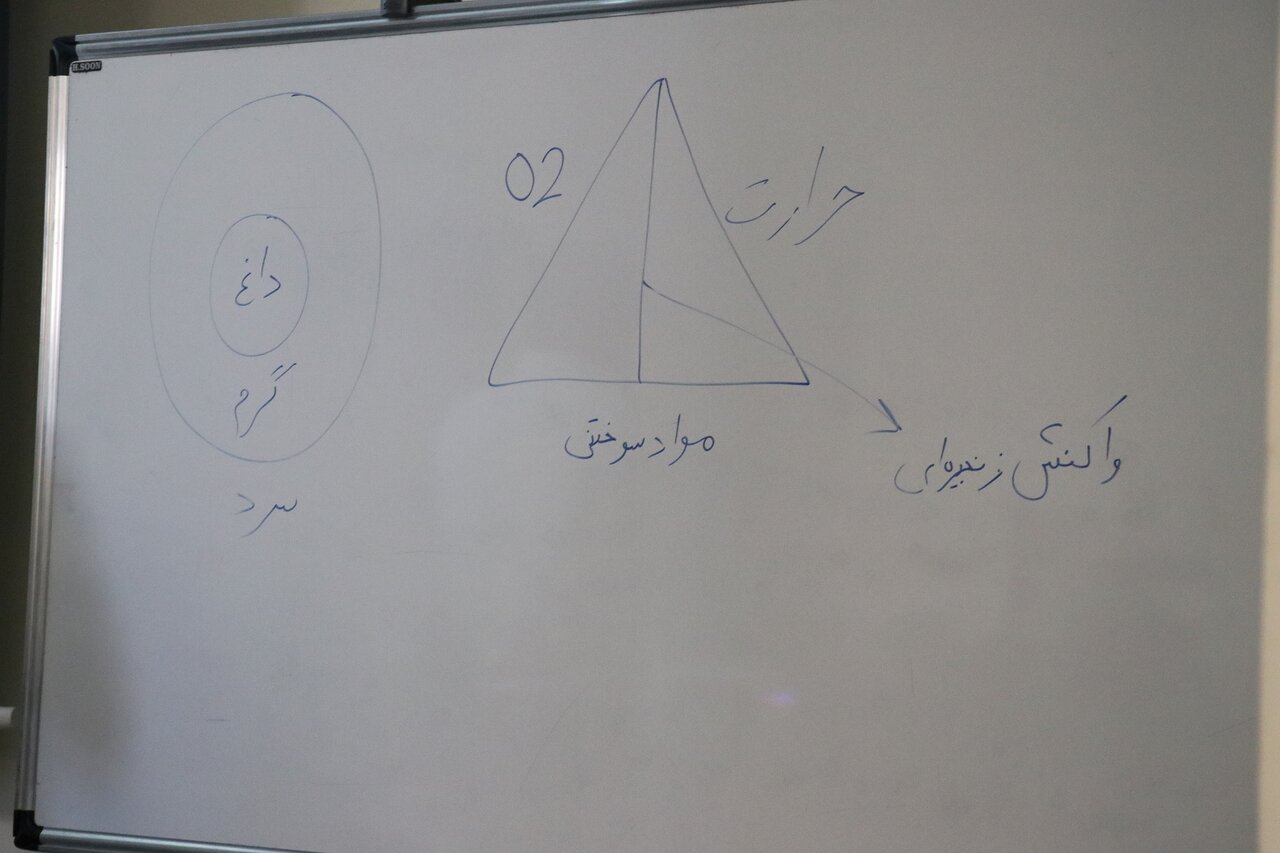 H.SOON
O2
حرارت
مواد سوختنی
واکنش زنجیره‌ای
داغ
گرم
سرد